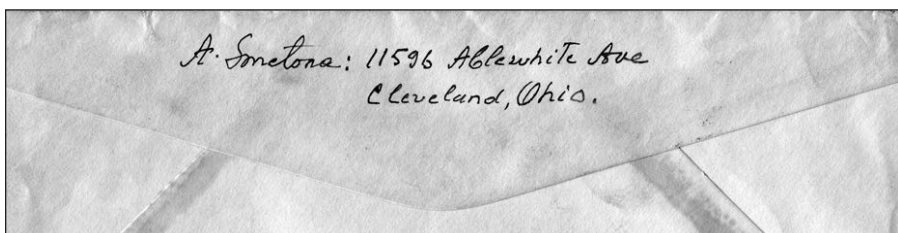 A. Smetona: 11596 Ablewhite Ave
Cleveland, Ohio.